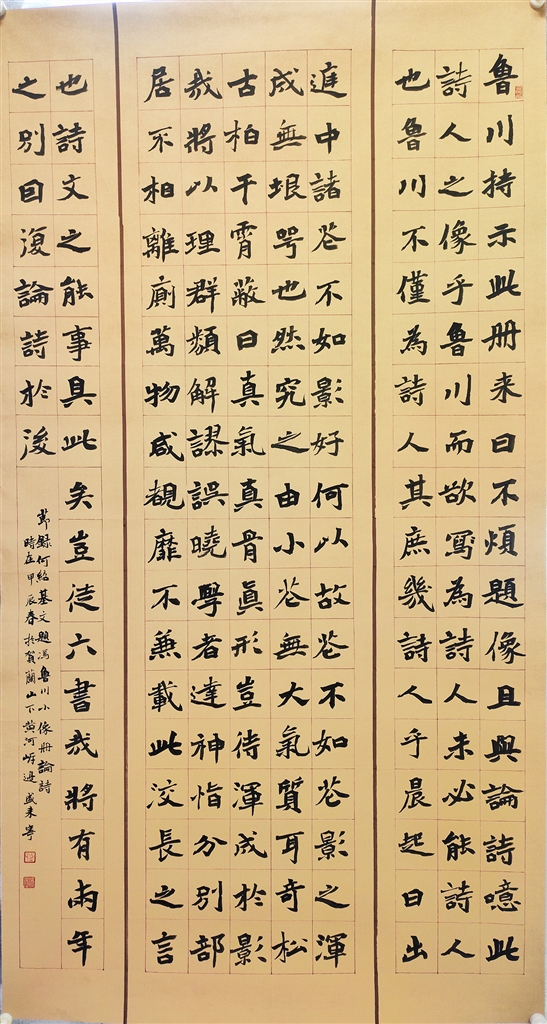 魯川持示此册来曰不煩題像且與論詩噫此
詩人之像乎魯川而欲寫為詩人未必能詩人
也魯川不僅為詩人其庶幾詩人乎晨起日出
進中諸花不如影好何以故花不如花影之渾
成無垠咢也然究之由小花無大氣質耳奇松
古柏干霄蔽日真氣真骨真形豈待渾成於影
哉將以理群類解謬誤曉學者達神恉分別部
居不相離廁萬物咸覩靡不兼載此洨長之言
也詩文之能事具此矣豈徒六書哉將有兩年
之別因復論詩於後
節錄何紹基文題馮魯川小像册論詩
時在甲辰春於蘭山下黄河岸邊盛来寧